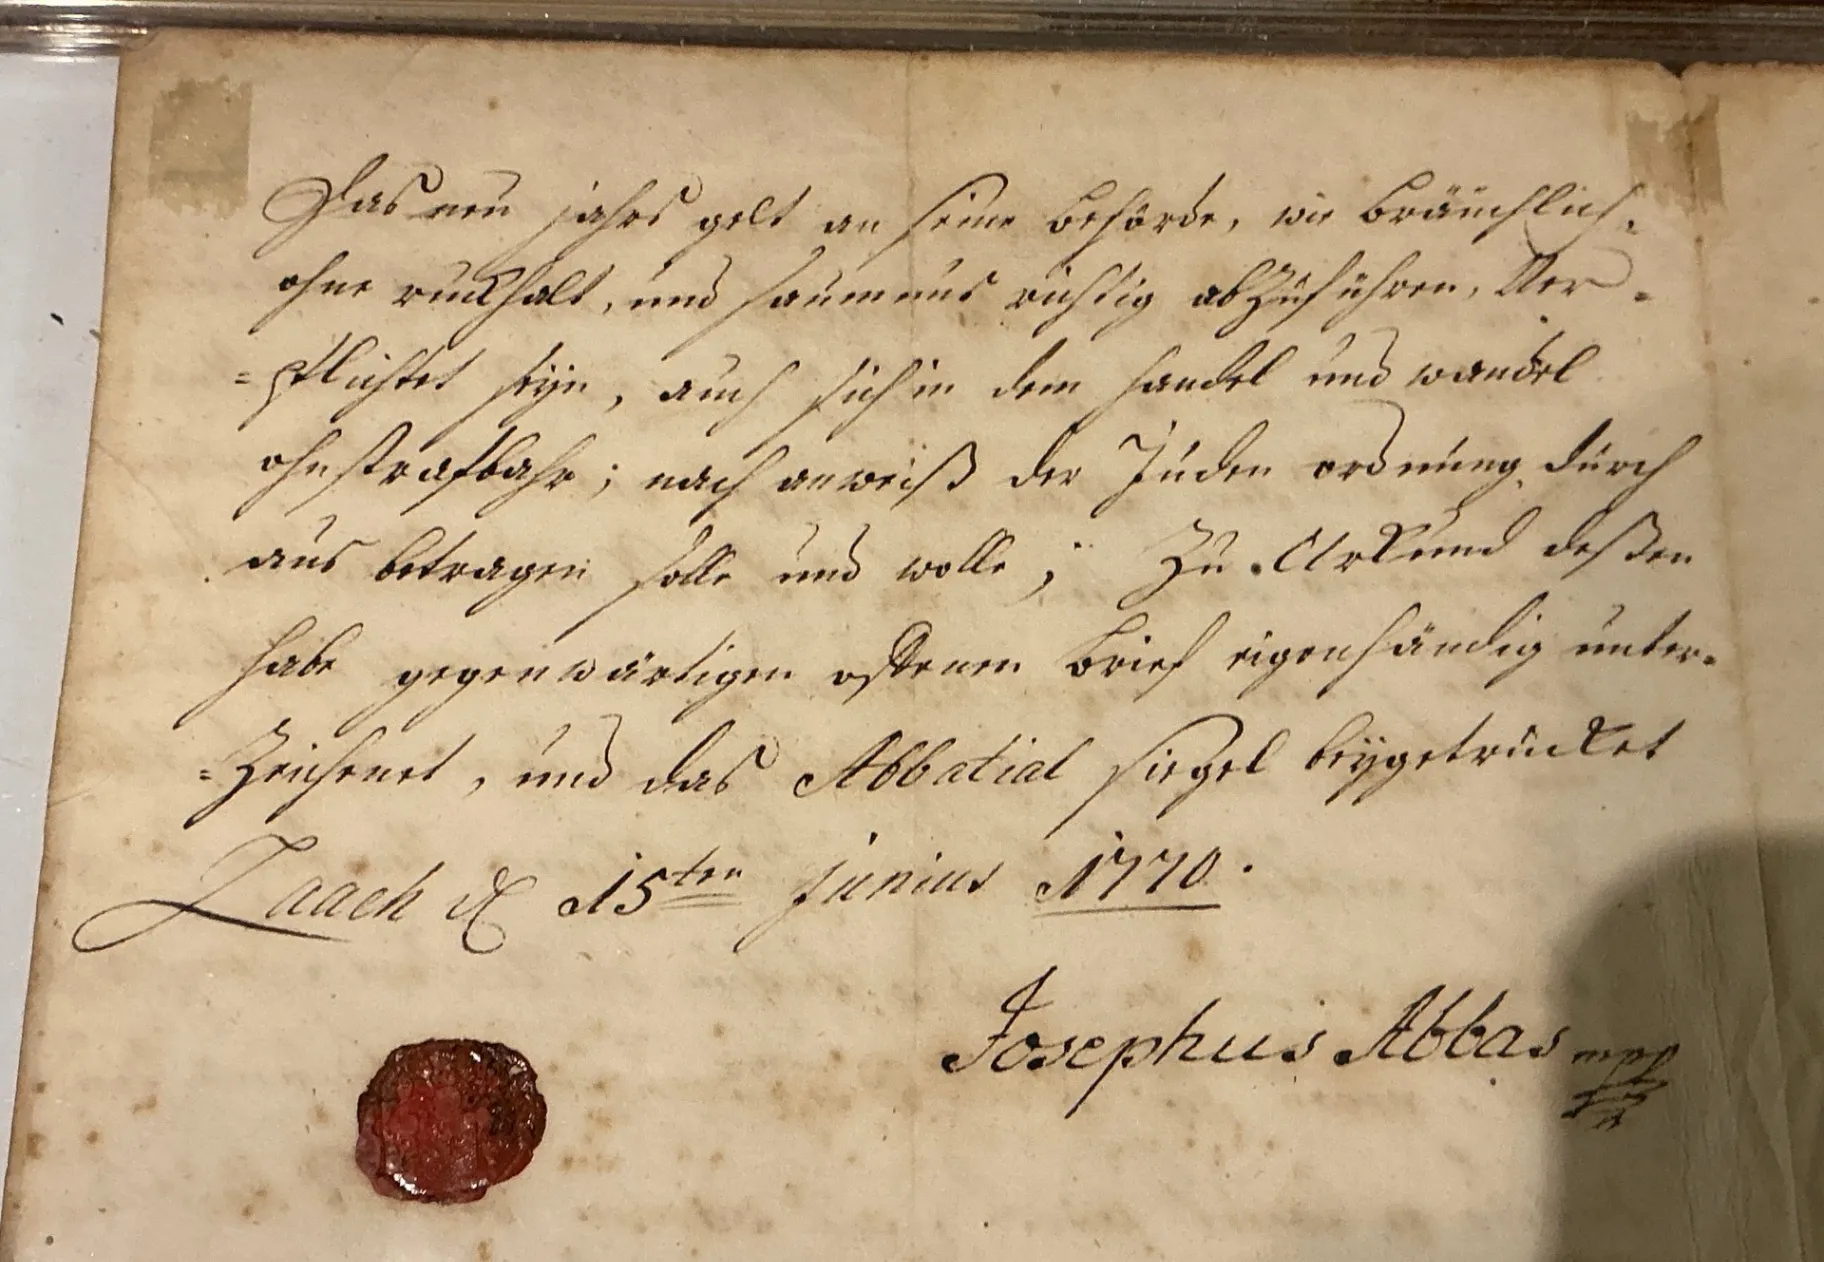 Das neu jahrs gelt an seine behörde, wie bräuchlich,
ohne ruckhalt, und saumnus richtig abzuführen, Ver-
=pflichtet seÿn, auch sich in dem handel und wandel
ohnstrafbahr; nach anweiß der Juden ordnung durch
aus betragen solle und wolle; Zu Urkund deßen
habe gegenwärtigen offenen brief eigenhändig unter-
=zeichnet, und das Abbatial siegel beÿgetrücket
Laach d 15ten Junius 1770.
Josephus Abbas mpp